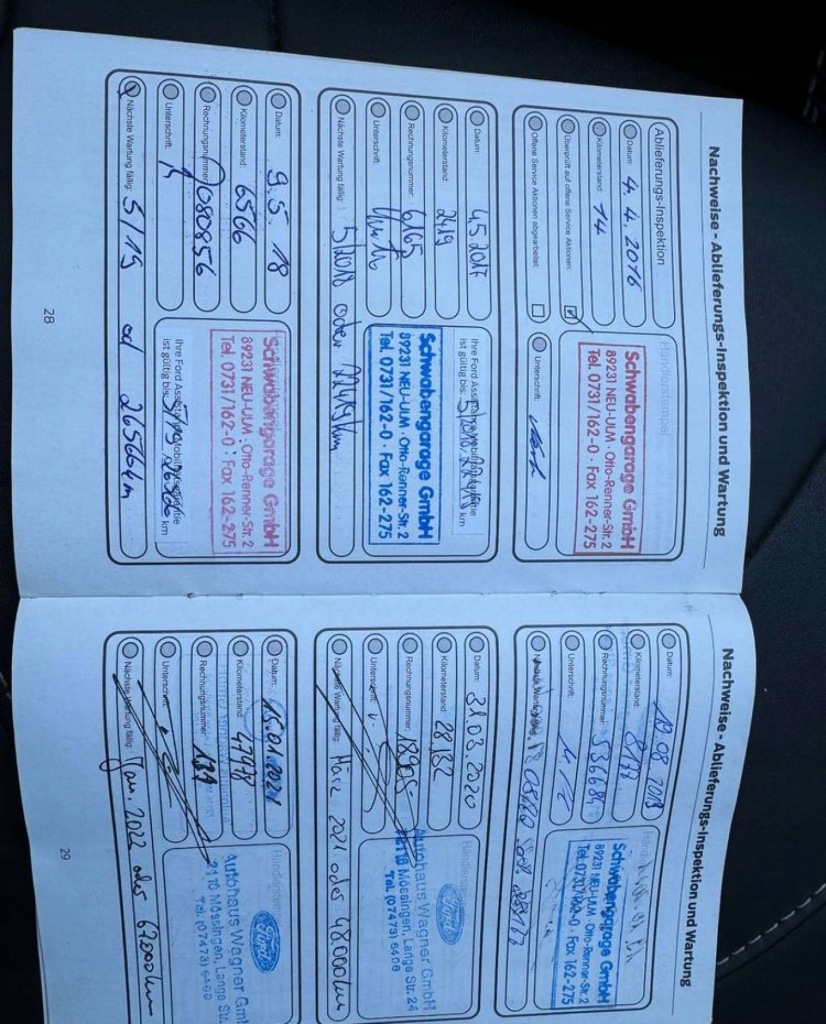 Nachweise - Ablieferungs-Inspektion und Wartung
Ablieferungs-Inspektion
Datum: 4.4.2016
Kilometerstand: 14
Überprüft auf offene Service Aktionen:
Offene Service Aktionen abgearbeitet:
Händlerstempel
Schwabengarage GmbH
89231 NEU-ULM · Otto-Renner-Str. 2
Tel. 0731/162-0 · Fax 162-275
Unterschrift:
Datum: 4.5.2017
Kilometerstand: 2419
Rechnungsnummer: 6165
Unterschrift:
Nächste Wartung fällig: 5/2018 oder 22419km
Ihre Ford Assistance Mobilitätsgarantie
ist gültig bis: 5/2018, 22419 km
Schwabengarage GmbH
89231 NEU-ULM · Otto-Renner-Str. 2
Tel. 0731/162-0 · Fax 162-275
Datum: 9.5.18
Kilometerstand: 6566
Rechnungsnummer: 7080856
Unterschrift:
Nächste Wartung fällig: 5/19 od 26566km
Schwabengarage GmbH
89231 NEU-ULM · Otto-Renner-Str. 2
Tel. 0731/162-0 · Fax 162-275
Ihre Ford Assistance Mobilitätsgarantie
ist gültig bis: 5/19, 26566 km
28
Nachweise - Ablieferungs-Inspektion und Wartung
Datum:
Kilometerstand:
Rechnungsnummer: 536684
Unterschrift:
Schwabengarage GmbH
89231 NEU-ULM · Otto-Renner-Str. 2
Tel. 0731/162-0 · Fax 162-275
Datum: 31.03.2020
Kilometerstand: 28132
Rechnungsnummer: 18905
Unterschrift:
Nächste Wartung fällig: März 2021 oder 48.000km
Ford
Autohaus Wagner GmbH
Mössingen, Lange Str. 24
Tel. (07473) 6406
Datum: 15.01.2021
Kilometerstand:
Rechnungsnummer:
Unterschrift:
Nächste Wartung fällig: Jan. 2022 oder 62000km
Ford
Autohaus Wagner
Mössingen, Lange Str.
Tel. (07473)
29